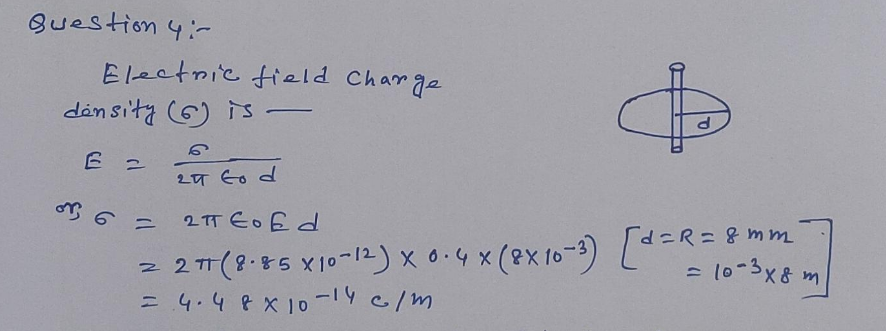 Question 4:-
Electric field Charge
density (σ) is —
E = σ / 2π ϵ0 d
or, σ = 2π ϵ0 E d
= 2π (8.85 x 10-12) x 0.4 x (8x10-3) [d = R = 8 mm
= 10-3 x 8 m]
= 4.48 x 10-14 c/m
d